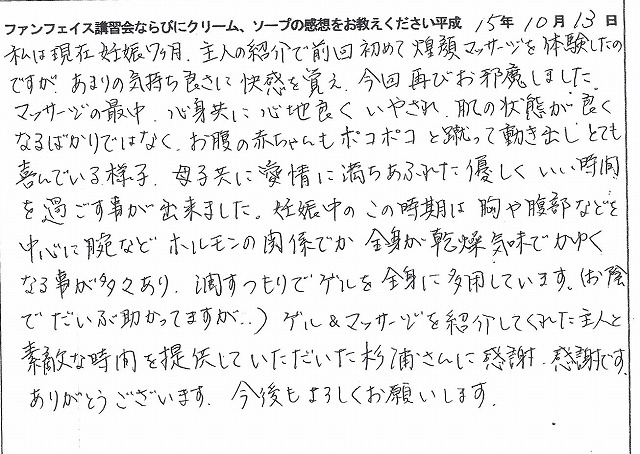 ファンフェイス講習会ならびにクリーム、ソープの感想をお教えください平成 15年 10月 13日
私は現在妊娠7ヶ月。主人の紹介で前回初めて煌顔マッサージを体験したの
ですが あまりの気持ち良さに快感を覚え、今回再びお邪魔しました。
マッサージの最中、心身共に心地良くいやされ、肌の状態が良く
なるばかりではなく、お腹の赤ちゃんもポコポコと蹴って動き出しとても
喜んでいる様子。母子共に愛情に満ちあふれた優しくいい時間
を過ごす事が出来ました。妊娠中のこの時期は胸や腹部などを
中心に腕など ホルモンの関係でか 全身が乾燥気味でかゆく
なる事が多々あり、潤すつもりでゲルを全身に多用しています。(お陰
でだいぶ助かってますが..) ゲル&マッサージを紹介してくれた主人と
素敵な時間を提供していただいた杉浦さんに感謝、感謝です。
ありがとうございます。今後もよろしくお願いします。